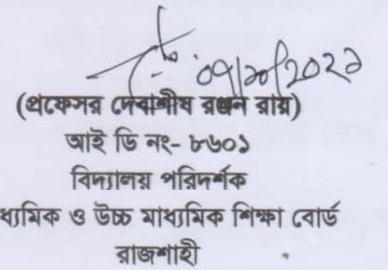 ০৭/১০/২০২১
(প্রফেসর দেবাশীষ রঞ্জন রায়)
আই ডি নং- ৮৬০১
বিদ্যালয় পরিদর্শক
ধ্যমিক ও উচ্চ মাধ্যমিক শিক্ষা বোর্ড
রাজশাহী